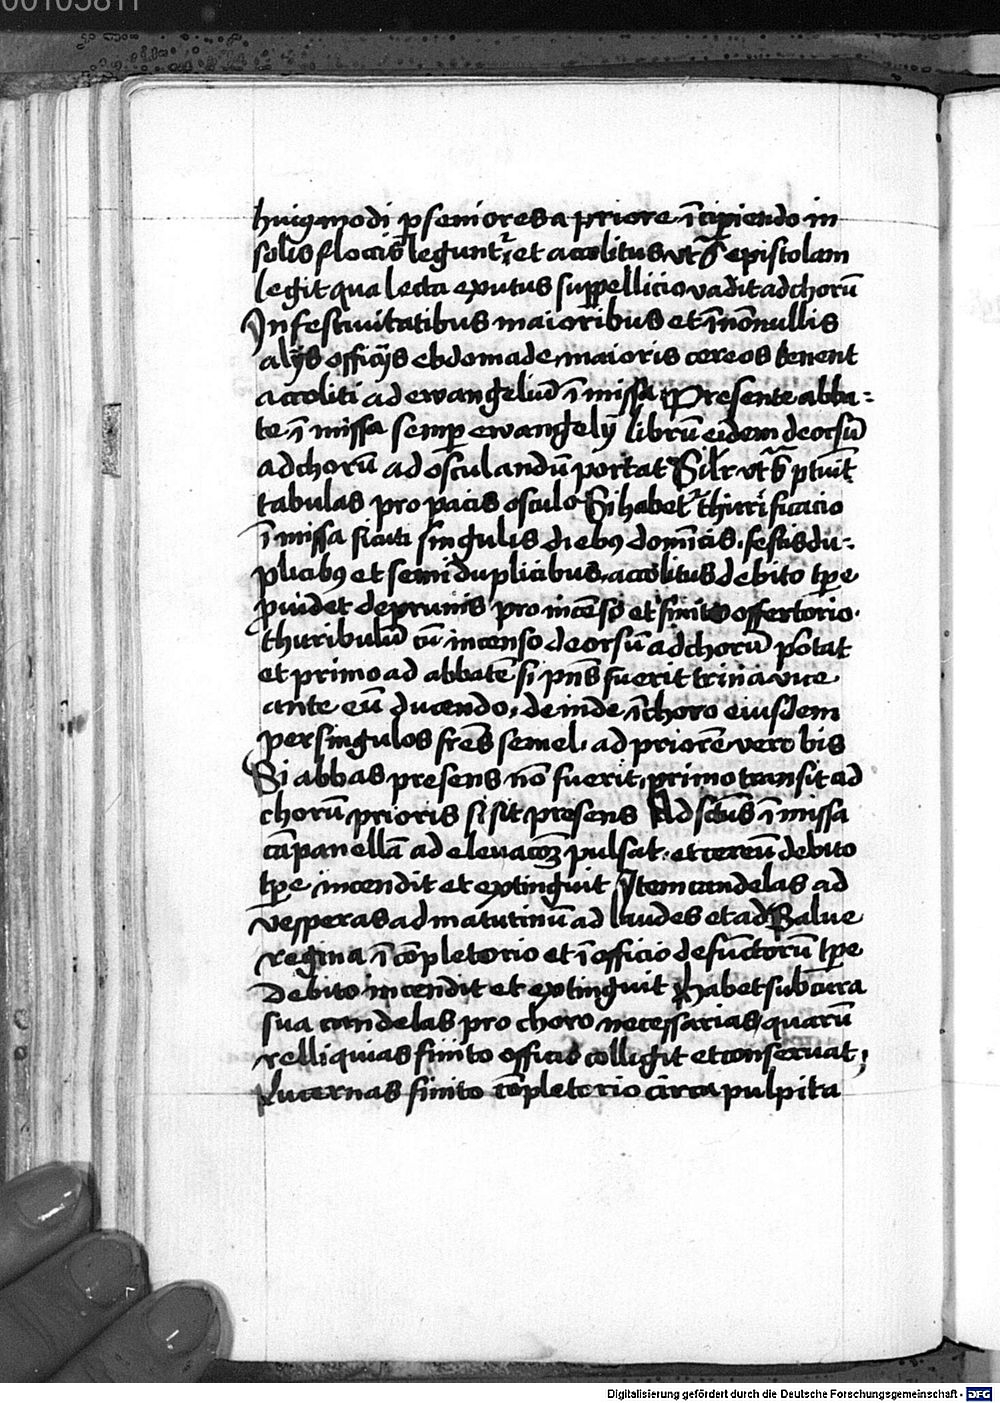 00105811
huiꝰmodi p seniores a priore īcipiendo in
solis floccis legunt᷑, et accolitus vt sᷓ epistolam
legit qua lecta exutus suppellicio vadit ad chorū
In festiuitatibus maioribus et ī nōnullis
alijs officijs ebdomade maioris cereos tenent
accoliti ad ewangeliū ī missa Presente abba=
te ī missa semp ewangelij librū eidem deorsū
ad chorū ad osculandū portat Silr vt sᷓ
tabulas pro pacis osculo Si habet᷑ thurificacio
ī missa sicuti singulis diebꝰ domīcis festis du=
plicibꝰ et semiduplicibus, accolitus debito tp̄e
puidet de prunis pro incēso et finito offertorio
thuribulū cū incenso deorsū ad chorū portat
et primo ad abbatē si pn̄s fuerit trina vice
ante eū ducendo, deinde ī choro eiusdem
per singulos frēs semel, ad priorē vero bis
Si abbas presens nō fuerit, primo transit ad
chorū prioris si sit presens Ad sctūs ī missa
cāpanellā ad eleuacōꝫ pulsat, et cereū debito
tp̄e incendit et extinguit Item candelas ad
vesperas ad matutinū ad laudes et ad Salue
regina ī cōpletorio et ī officio defūctorū tp̄e
debito incendit et extinguit habet sub cura
sua candelas pro choro necessarias, quarū
relliquias finito officio colligit et conseruat,
Lucernas finito cōpletorio circa pulpita
Digitalisierung gefördert durch die Deutsche Forschungsgemeinschaft - DFG